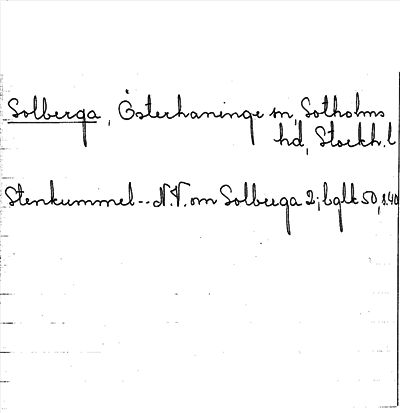 Solberga, Österhaninge sn, Sotholms
hd, Stockh. l
Stenkummel -- N.V. om Solberga 2; bglt 50, s. 40